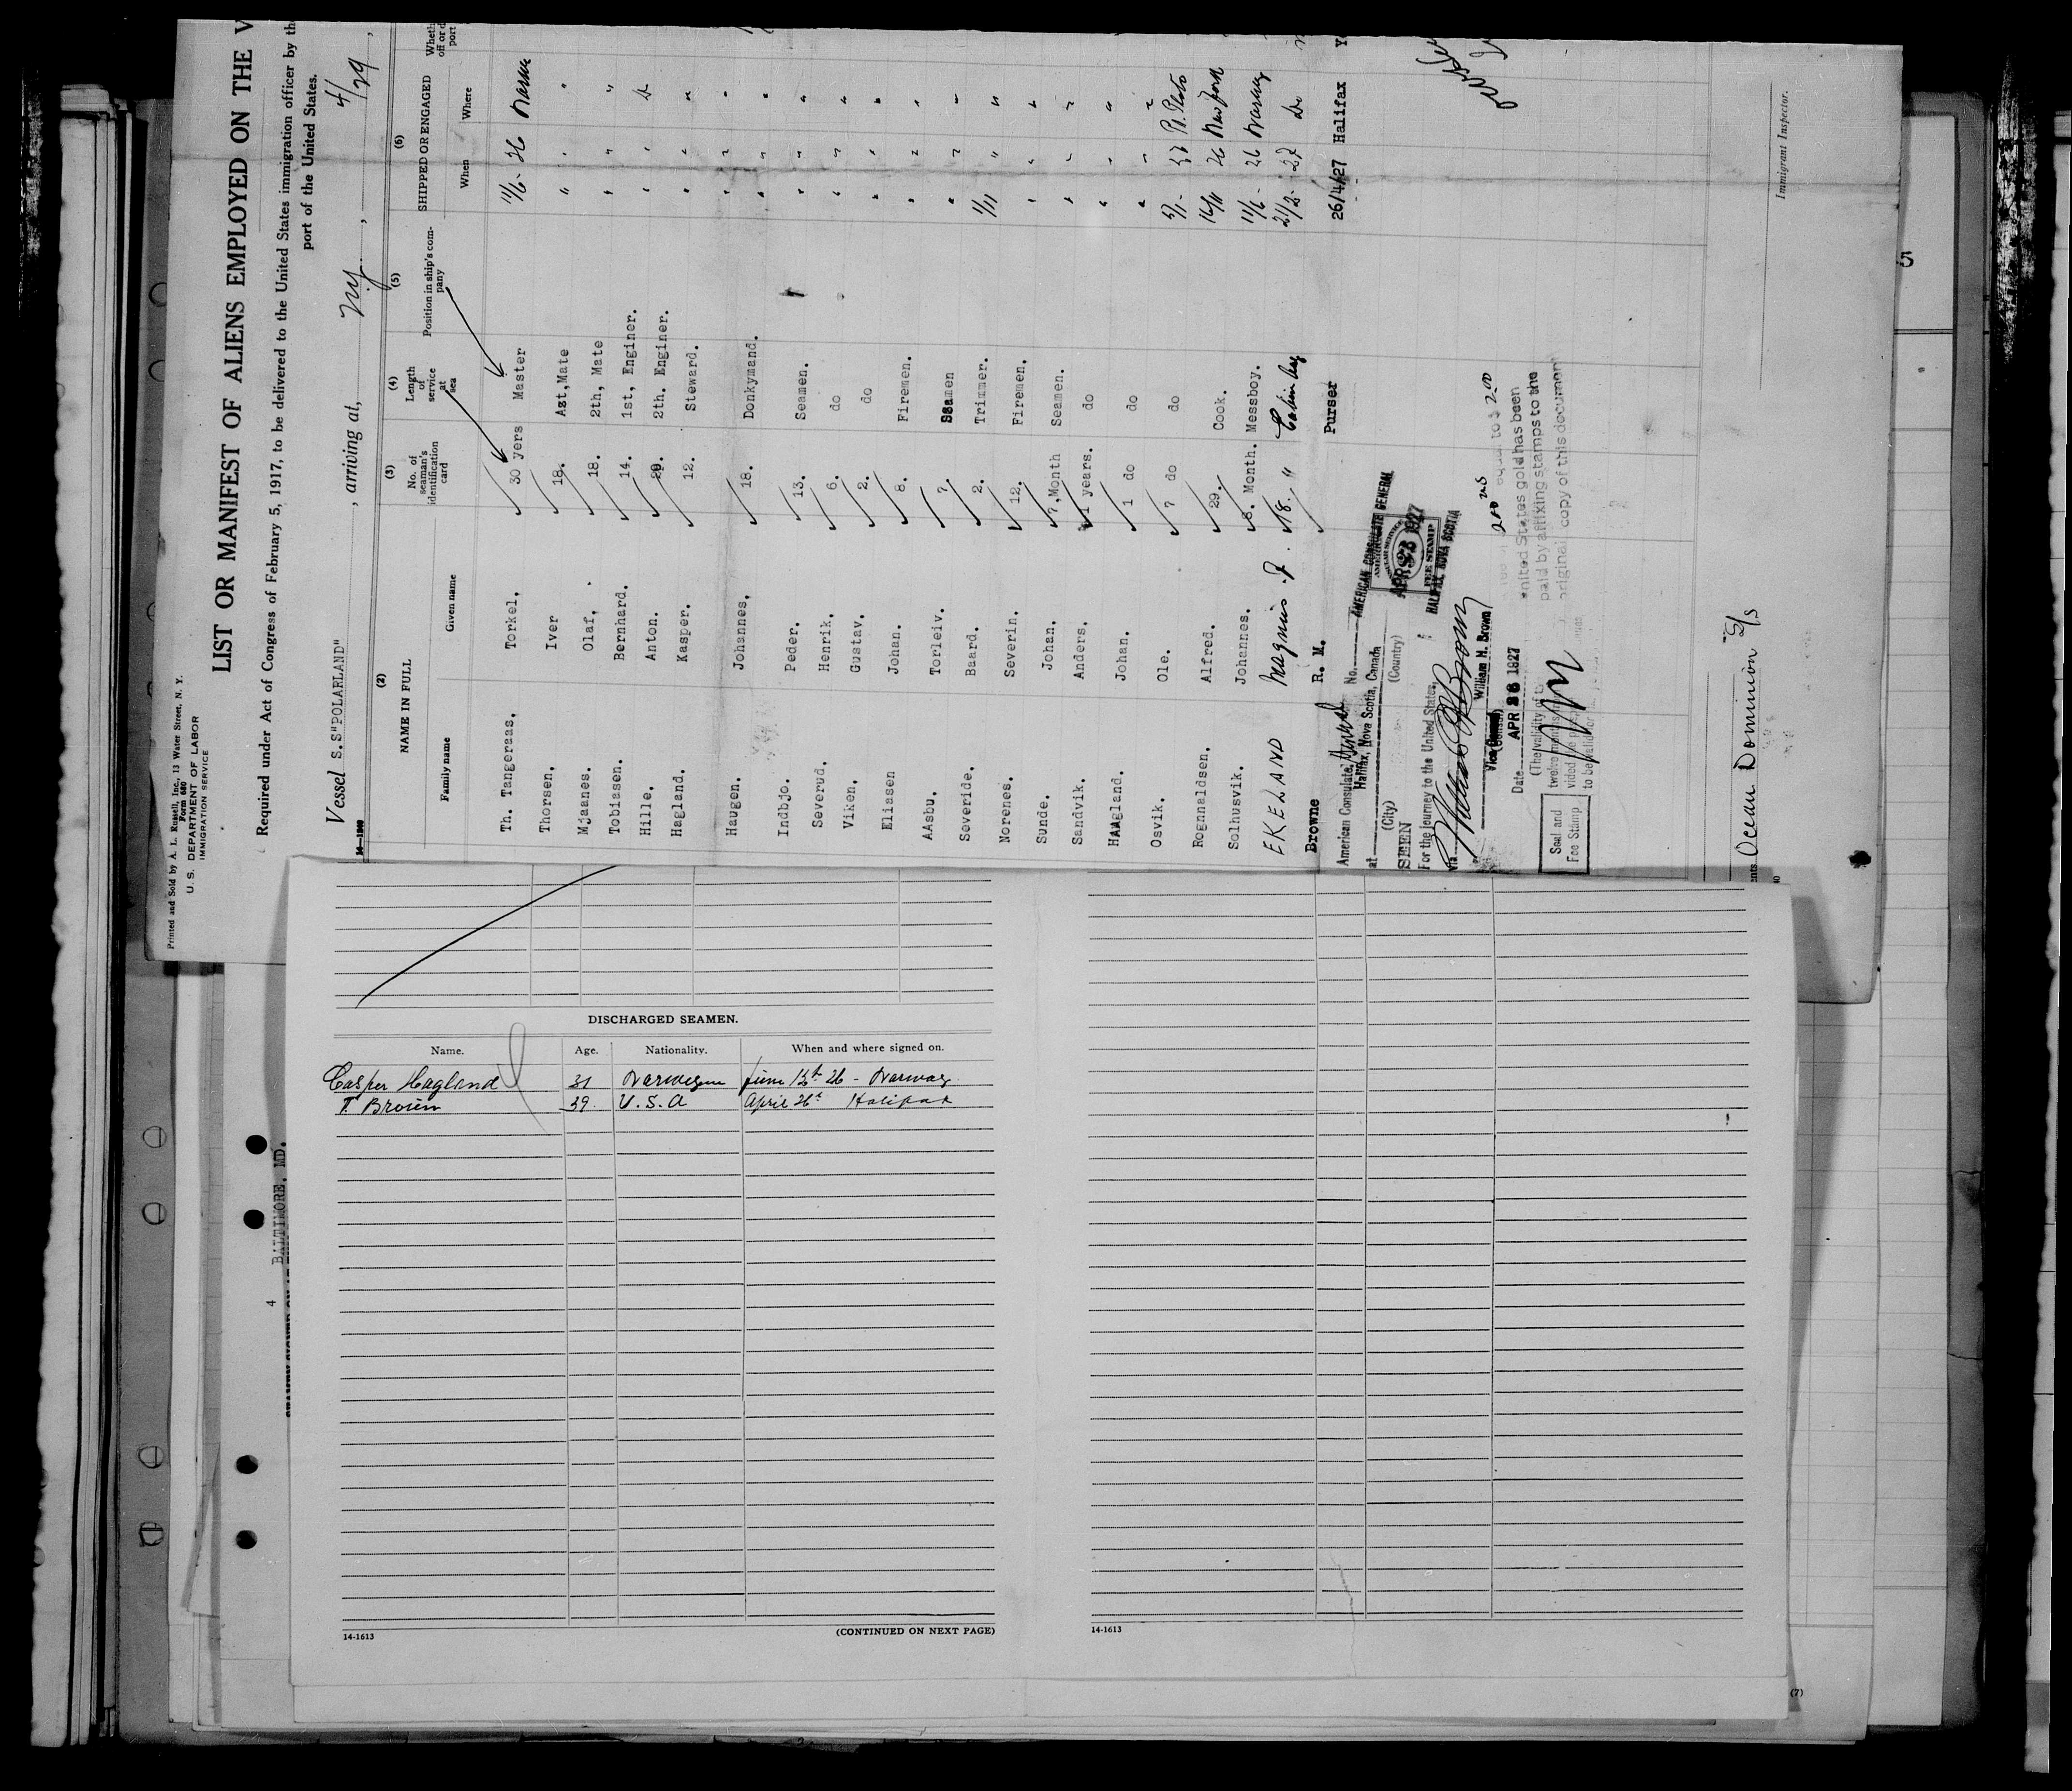 Printed and Sold by A. L. Russell, Inc., 13 Water Street, N. Y.
Form 680
U. S. DEPARTMENT OF LABOR
IMMIGRATION SERVICE
LIST OR MANIFEST OF ALIENS EMPLOYED ON THE V
Required under Act of Congress of February 5, 1917, to be delivered to the United States immigration officer by th
port of the United States.
Vessel S.S"POLARLAND" , arriving at, NY , 4/29 ,
(2) (3) (4) (5) (6)
NAME IN FULL No. of seaman's identification card Length of service at sea Position in ship's company SHIPPED OR ENGAGED Wheth
off or d
port
Family name Given name When Where
Th. Tangeraas. Torkel, 30 yers Master 11/6- 26
Thorsen. Iver 18. Azt,Mate " " "
Mjaanes. Olaf, . 18. 2th, Mate " " "
Tobiasen. Bernhard. 14. 1st, Enginer. " " Do
Hille. Anton. 20. 2th. Enginer. " " "
Hagland. Kasper. 12. Steward. " " "
Haugen. Johannes, 18. Donkymand. " " "
Indbjo. Peder. 13. Seamen. " " "
Severud. Henrik. 6. do " " "
Viken. Gustav. 2. do " " "
Eliasen Johan. 8. Firemen. " " "
AAsbu. Torleiv. 7. Seamen " " "
Soveride. Baard. 2. Trimmer. 1/11 " "
Norenes. Severin. 12. Firemen. " " "
Sunde. Johan. 7,Month Seamen. " " "
Sandvik. Anders. 1 years. do " " "
HAAgland. Johan. 1 do do " " "
Osvik. Ole. 7 do do 5/1- 27
Rognnaldsen. Alfred. 29. Cook. 16/11 26 New York
Solhusvik. Johannes. 8. Month. Messboy. 11/6- 26 Norway
EKELAND Magnus J. 18. " Cabin boy 21/2- 27 Do
Browne R. M. Purser 26/4/27 Halifax Y
American Consulate No.
AMERICAN CONSULATE GENERAL
at Halifax, Nova Scotia, Canada
(City) (Country)
SEEN
For the journey to the United States,
via
AMERICAN
APR 26 1927
FEE STAMP
HALIFAX, NOVA SCOTIA
William M. Brown
Vice Consul
Date APR 26 1927
(The validity of
twelve months
vided
to be valid for
Seal and
Fee Stamp
equal to $ 2.00
United States gold has been
paid by affixing stamps to the
original copy of this document
Immigrant Inspector.
ents Ocean Dominion S/s
DISCHARGED SEAMEN.
Name. Age. Nationality. When and where signed on.
Casper Hagland 31 Norwegian June 13th 26 - Norway
T. Brown 39. U.S.A April 26th Halifax
14-1613 (CONTINUED ON NEXT PAGE)
14-1613
(7)
4 BALTIMORE, MD.
5